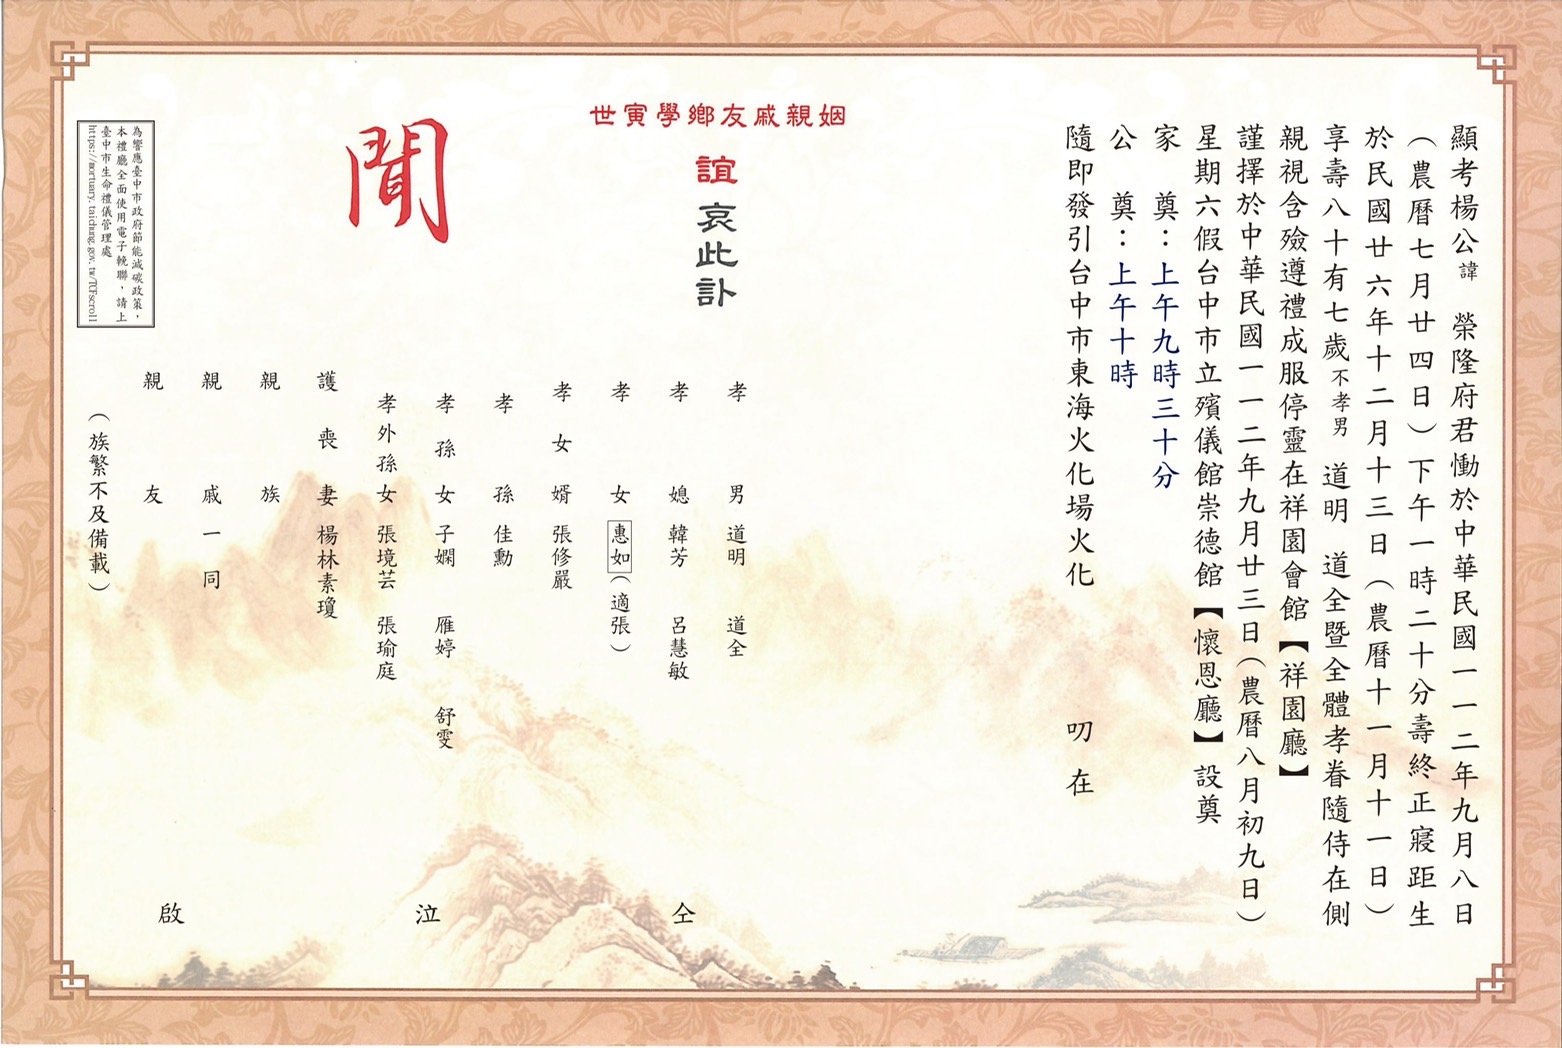 顯考楊公諱 榮隆府君慟於中華民國一一二年九月八日
（農曆七月廿四日）下午一時二十分壽終正寢距生
於民國廿六年十二月十三日（農曆十一月十一日）
享壽八十有七歲不孝男 道明 道全暨全體孝眷隨侍在側
親視含殮遵禮成服停靈在祥園會館【祥園廳】
謹擇於中華民國一一二年九月廿三日（農曆八月初九日）
星期六假台中市立殯儀館崇德館【懷恩廳】設奠
家 奠：上午九時三十分
公 奠：上午十時
隨即發引台中市東海火化場火化 叨在
姻親戚友鄉學寅世
誼哀此訃
聞
孝男 道明 道全
孝媳 韓芳 呂慧敏
孝女 惠如（適張）
孝女婿 張修嚴
孝孫 佳勳
孝孫女 子嫻 雁婷 舒雯
孝外孫女 張境芸 張瑜庭
護喪妻 楊林素瓊
親族
親戚一同
親友
（族繁不及備載）
仝 泣 啟
為響應臺中市政府節能減碳政策，
本禮廳全面使用電子輓聯，請上
臺中市生命禮儀管理處
https://mortuary.taichung.gov.tw/TCFscroll